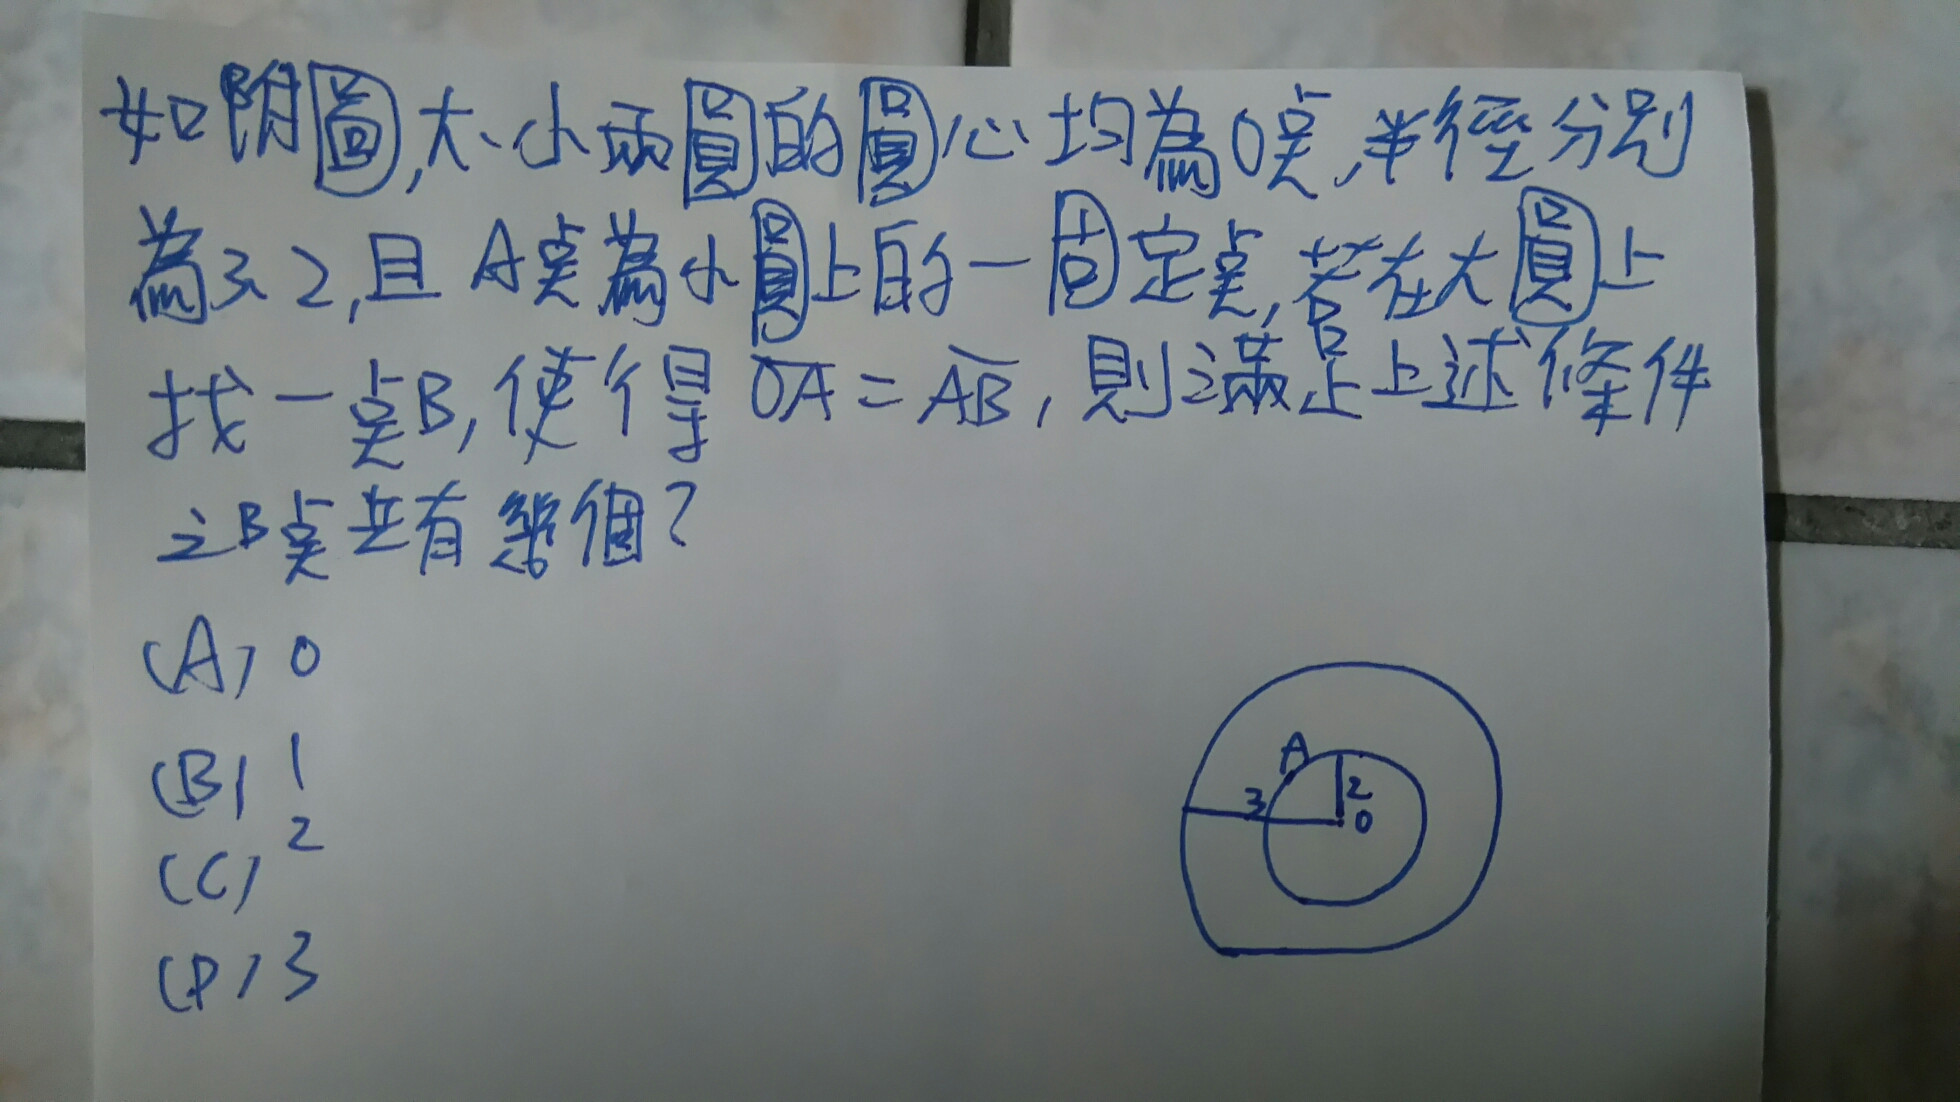 如附圖,大、小兩圓的圓心均為O點,半徑分別
為3、2,且A點為小圓上的一固定點,若在大圓上
找一點B,使得OA=AB,則滿足上述條件
之B點共有幾個?
(A) 0
(B) 1
(C) 2
(D) 3
A
3
2
O